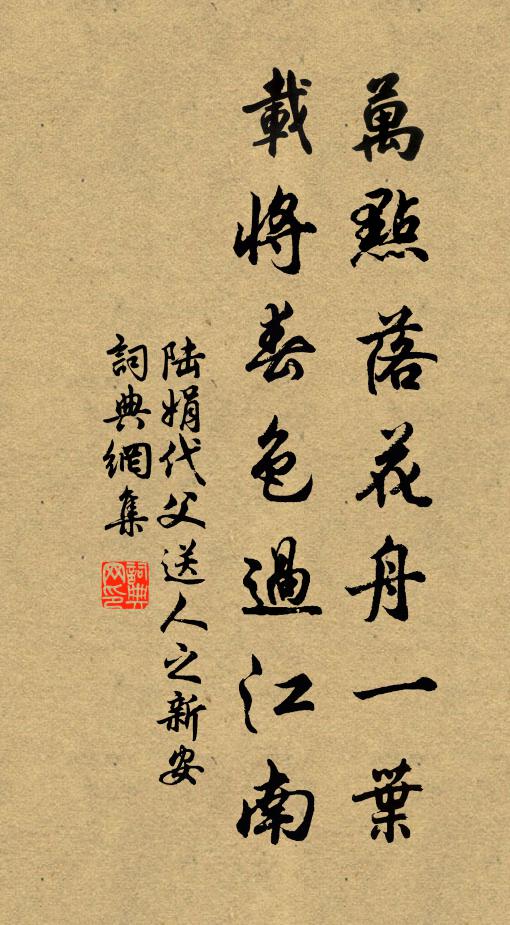 萬點落花舟一葉
載將春色過江南
陆娟代父送人之新安
詞典網集
詞典网印